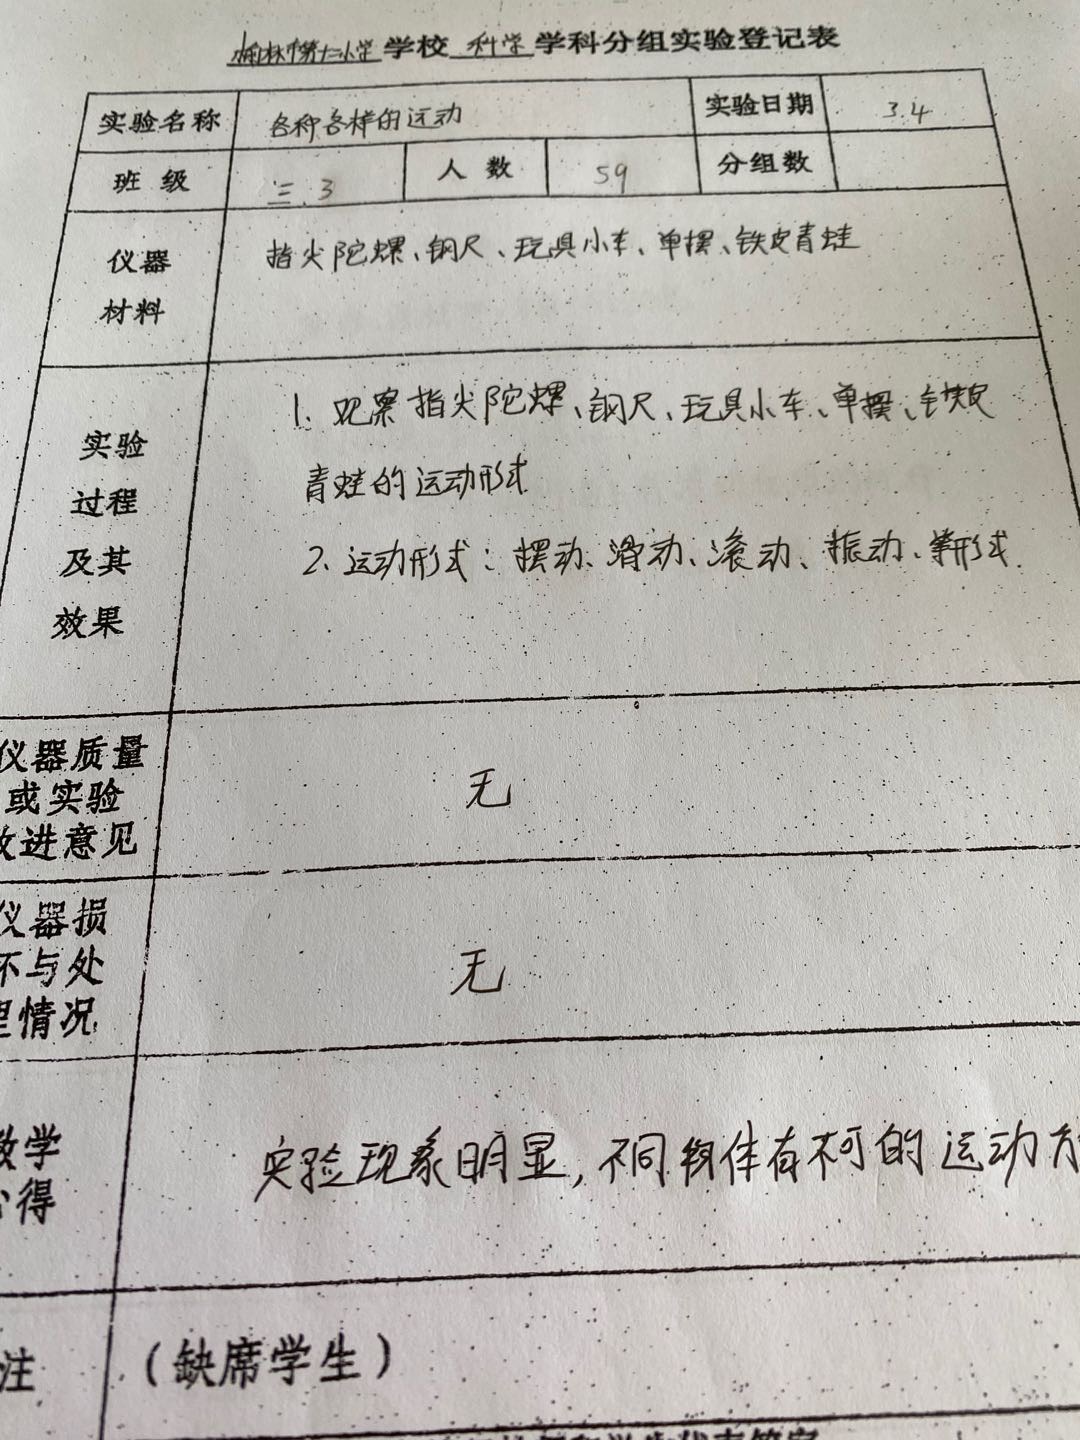 榆林市第十二小学学校 科学 学科分组实验登记表
实验名称 各种各样的运动 实验日期 3.4
班级 三.3 人数 59 分组数
仪器 指尖陀螺、钢尺、玩具小车、单摆、铁皮青蛙
材料
1. 观察指尖陀螺、钢尺、玩具小车、单摆、铁皮
实验
青蛙的运动形式
过程
及其 2. 运动形式：摆动、滑动、滚动、振动、等形式.
效果
仪器质量
或实验 无
改进意见
仪器损
坏与处 无
理情况
教学 实验现象明显,不同物体有不同的运动方
心得
注 (缺席学生)